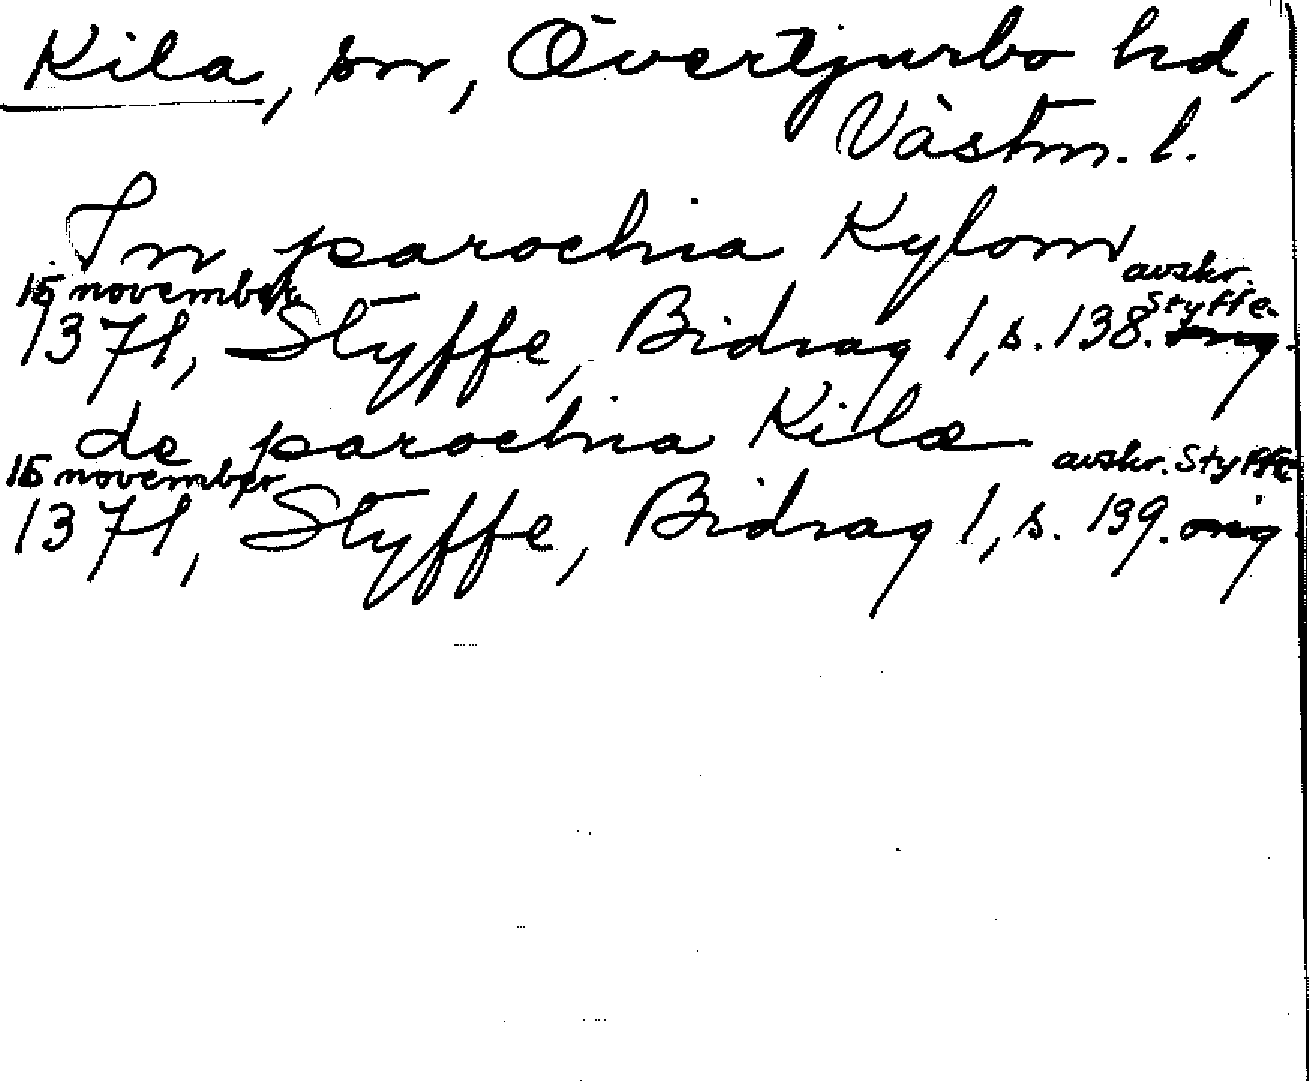 Kila, sn, Övertjurbo hd,
Västm. l.
In parochia Kylom
15 november avskr.
1371, Styffe, Bidrag 1, s. 138. Styffe. orig.
de parochia Kilæ
15 november avskr. Styffe
1371, Styffe, Bidrag 1, s. 139. orig